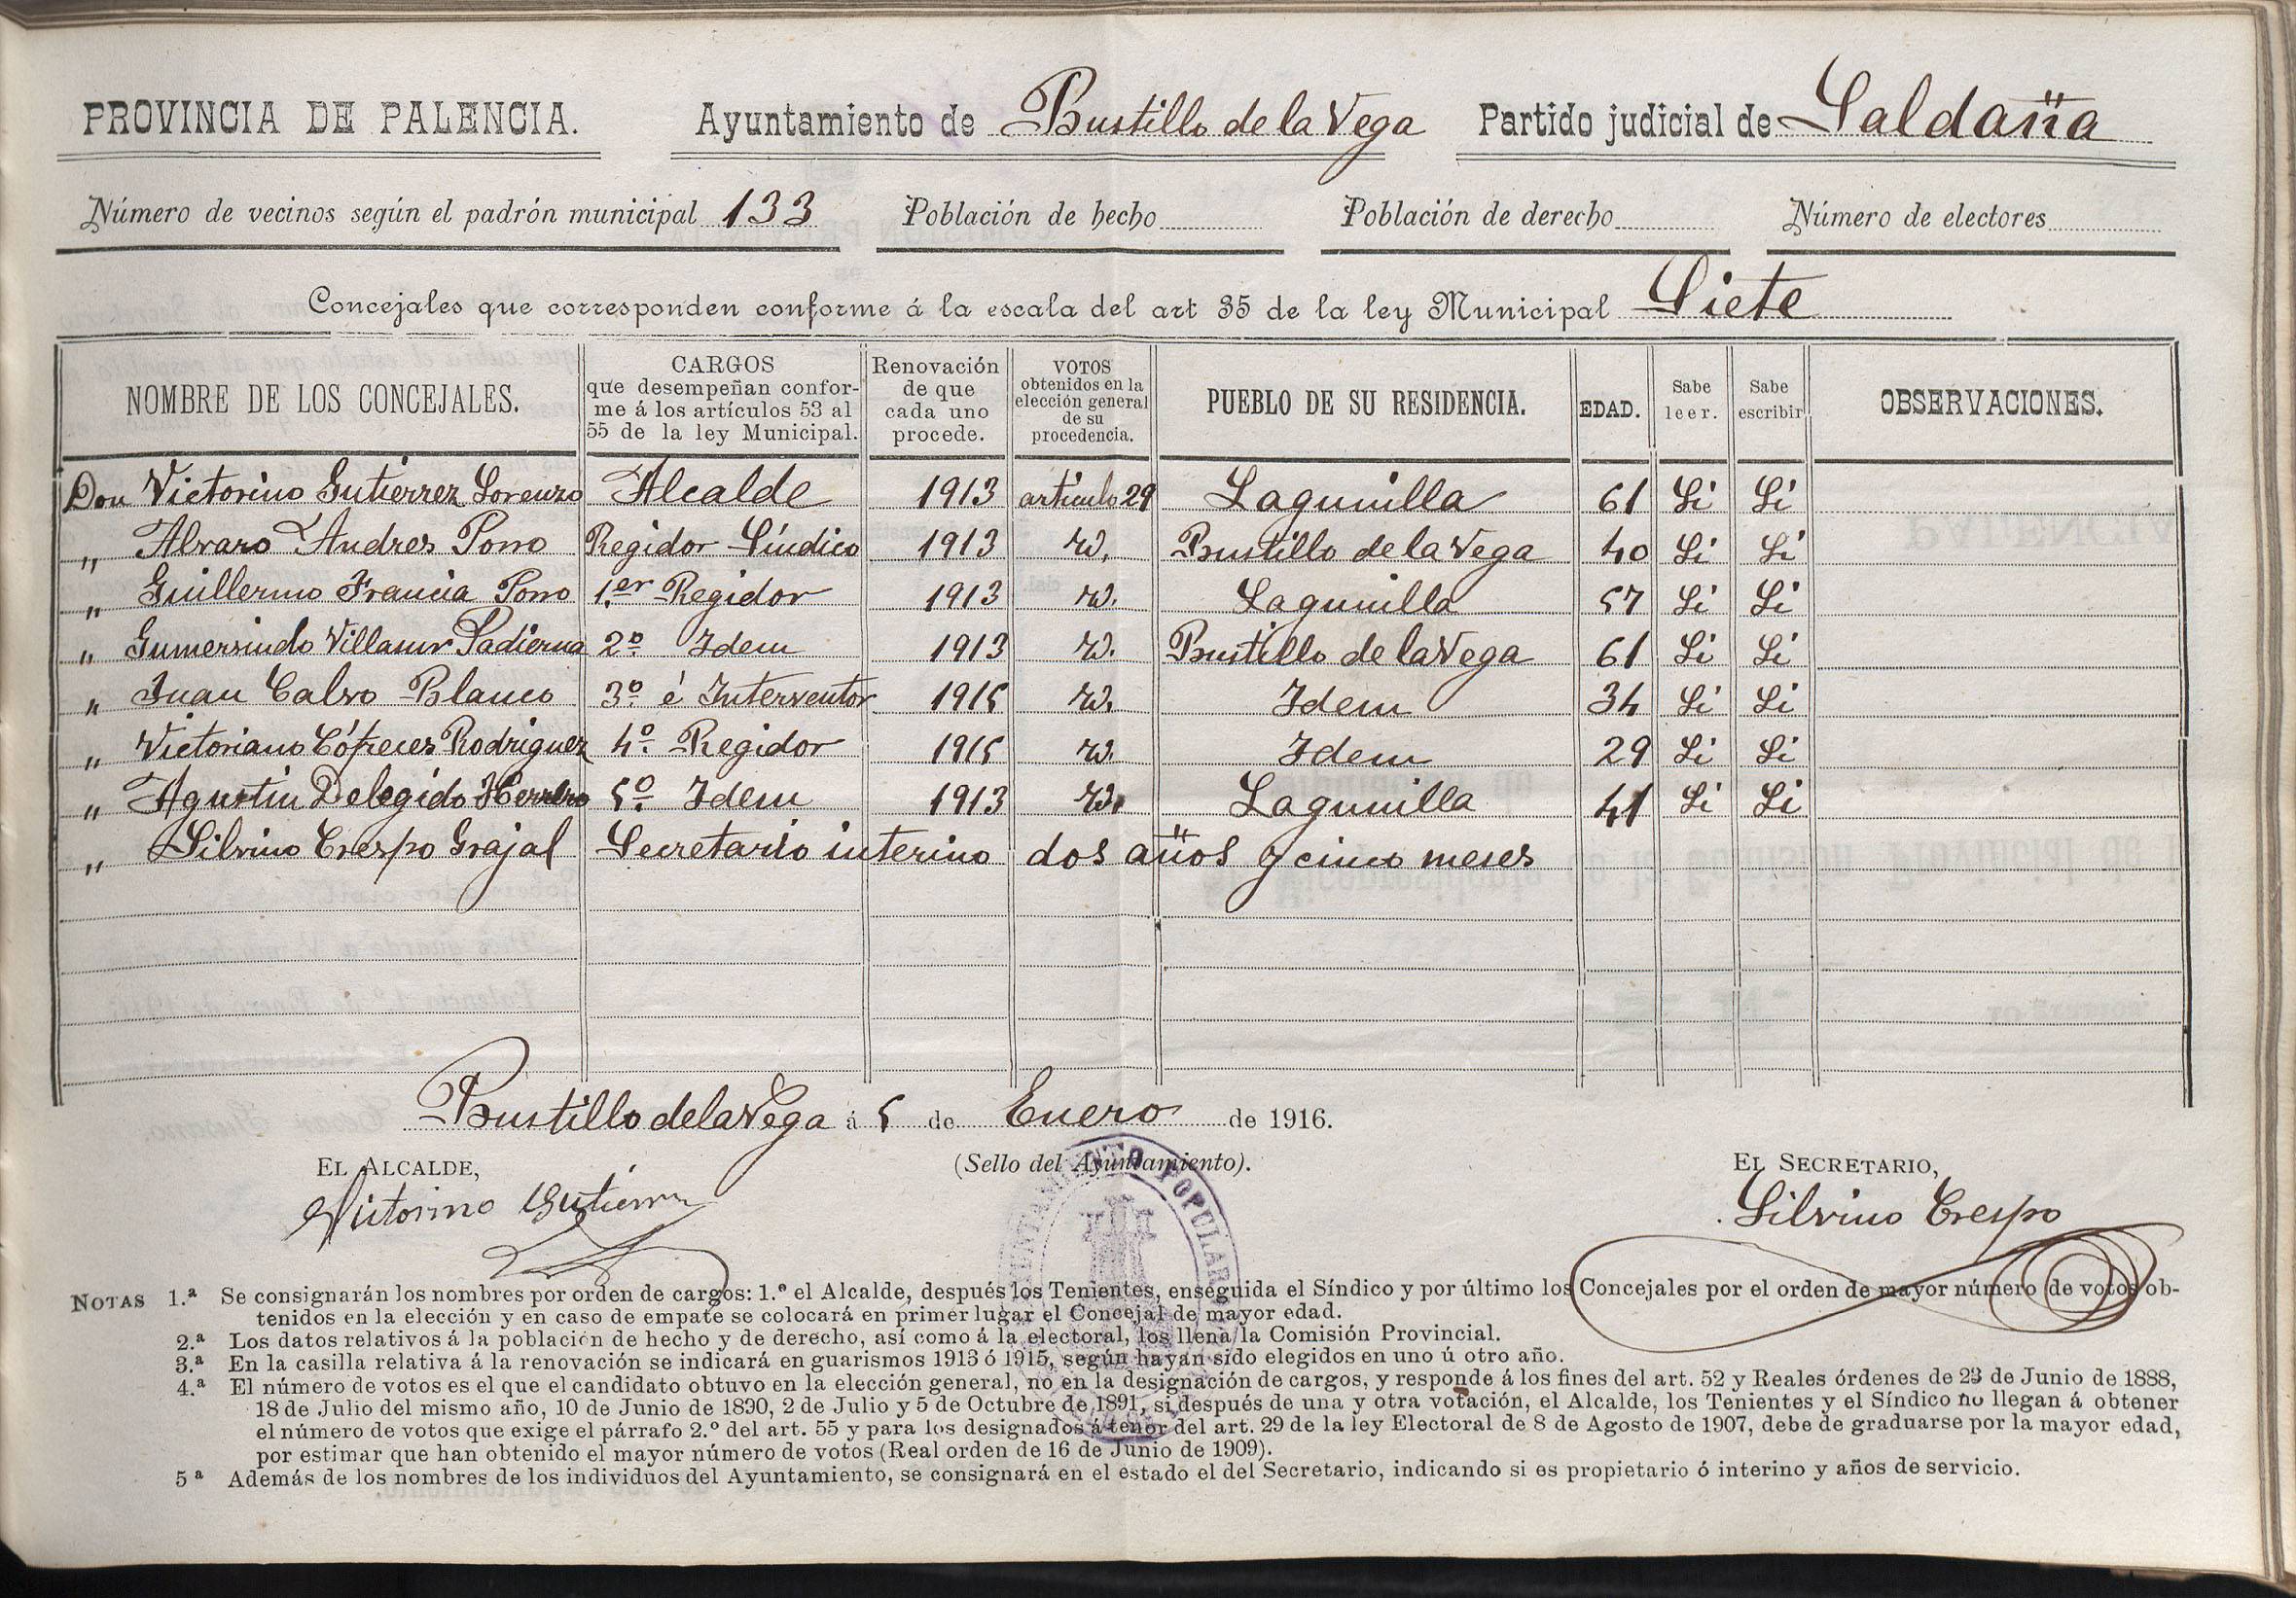 PROVINCIA DE PALENCIA. Ayuntamiento de Bustillo de la Vega Partido judicial de Saldaña
Número de vecinos según el padrón municipal 133 Población de hecho Población de derecho Número de electores
Concejales que corresponden conforme á la escala del art 35 de la ley Municipal Siete
NOMBRE DE LOS CONCEJALES. CARGOS que desempeñan conforme á los artículos 53 al 55 de la ley Municipal. Renovación de que cada uno procede. VOTOS obtenidos en la elección general de su procedencia. PUEBLO DE SU RESIDENCIA. EDAD. Sabe leer. Sabe escribir OBSERVACIONES.
Don Victorino Gutierrez Lorenzo Alcalde 1913 articulo 29 Lagunilla 61 Si Si
„ Alvaro Andres Porro Regidor Síndico 1913 id. Bustillo de la Vega 40 Si Si
„ Guillermo Francia Porro 1.er Regidor 1913 id. Lagunilla 57 Si Si
„ Gumersindo Villasur Sadierna 2º Idem 1913 id. Bustillo de la Vega 61 Si Si
„ Juan Calvo Blanco 3º é Interventor 1915 id. Idem 34 Si Si
„ Victoriano Cófreces Rodriguez 4º Regidor 1915 id. Idem 29 Si Si
„ Agustin Delegido Herrero 5º Idem 1913 id. Lagunilla 41 Si Si
„ Silvino Crespo Grajal Secretario interino dos años y cinco meses
Bustillo de la Vega á 5 de Enero de 1916.
EL ALCALDE, (Sello del Ayuntamiento). EL SECRETARIO,
Victorino Gutierrez Silvino Crespo
POPULAR
NOTAS 1.ª Se consignarán los nombres por orden de cargos: 1.º el Alcalde, después los Tenientes, enseguida el Síndico y por último los Concejales por el orden de mayor número de votos ob-
tenidos en la elección y en caso de empate se colocará en primer lugar el Concejal de mayor edad.
2.ª Los datos relativos á la población de hecho y de derecho, así como á la electoral, los llena la Comisión Provincial.
3.ª En la casilla relativa á la renovación se indicará en guarismos 1913 ó 1915, según hayan sido elegidos en uno ú otro año.
4.ª El número de votos es el que el candidato obtuvo en la elección general, no en la designación de cargos, y responde á los fines del art. 52 y Reales órdenes de 23 de Junio de 1888,
18 de Julio del mismo año, 10 de Junio de 1890, 2 de Julio y 5 de Octubre de 1891, si después de una y otra votación, el Alcalde, los Tenientes y el Síndico no llegan á obtener
el número de votos que exige el párrafo 2.º del art. 55 y para los designados á tenor del art. 29 de la ley Electoral de 8 de Agosto de 1907, debe de graduarse por la mayor edad,
por estimar que han obtenido el mayor número de votos (Real orden de 16 de Junio de 1909).
5ª Además de los nombres de los individuos del Ayuntamiento, se consignará en el estado el del Secretario, indicando si es propietario ó interino y años de servicio.